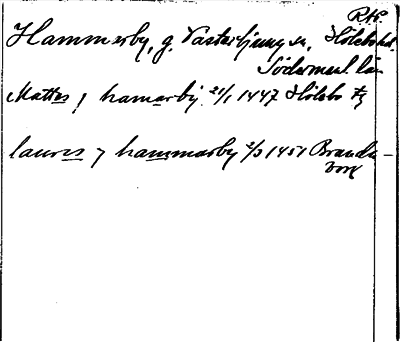 RAP.
Hammarby, g. Västerljung sn, Hölebo hd.
Södermanl. län
Mattes j hamarby 21/1 1447 Hölebo tg
laures j hammarby 2/3 1451 Branda-